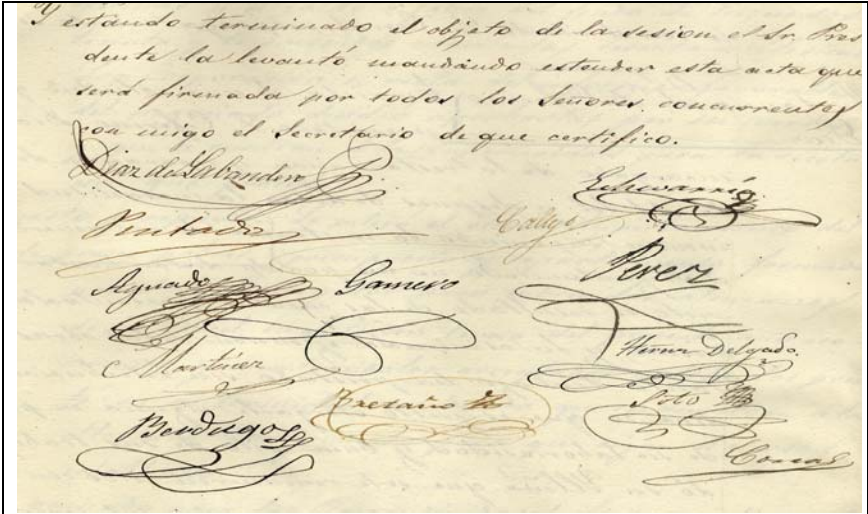 Y estando terminado el objeto de la sesion el Sr. Pres
dente la levantó mandando estender esta acta que
será firmada por todos los Senores. concurrentes
con migo el Secretario de que certifico.
Diaz de Labandero
Echevarría
Pintado
Calleja
Aguado
Gamero
Perez
Martinez
Delgado
Soto
Berdugo